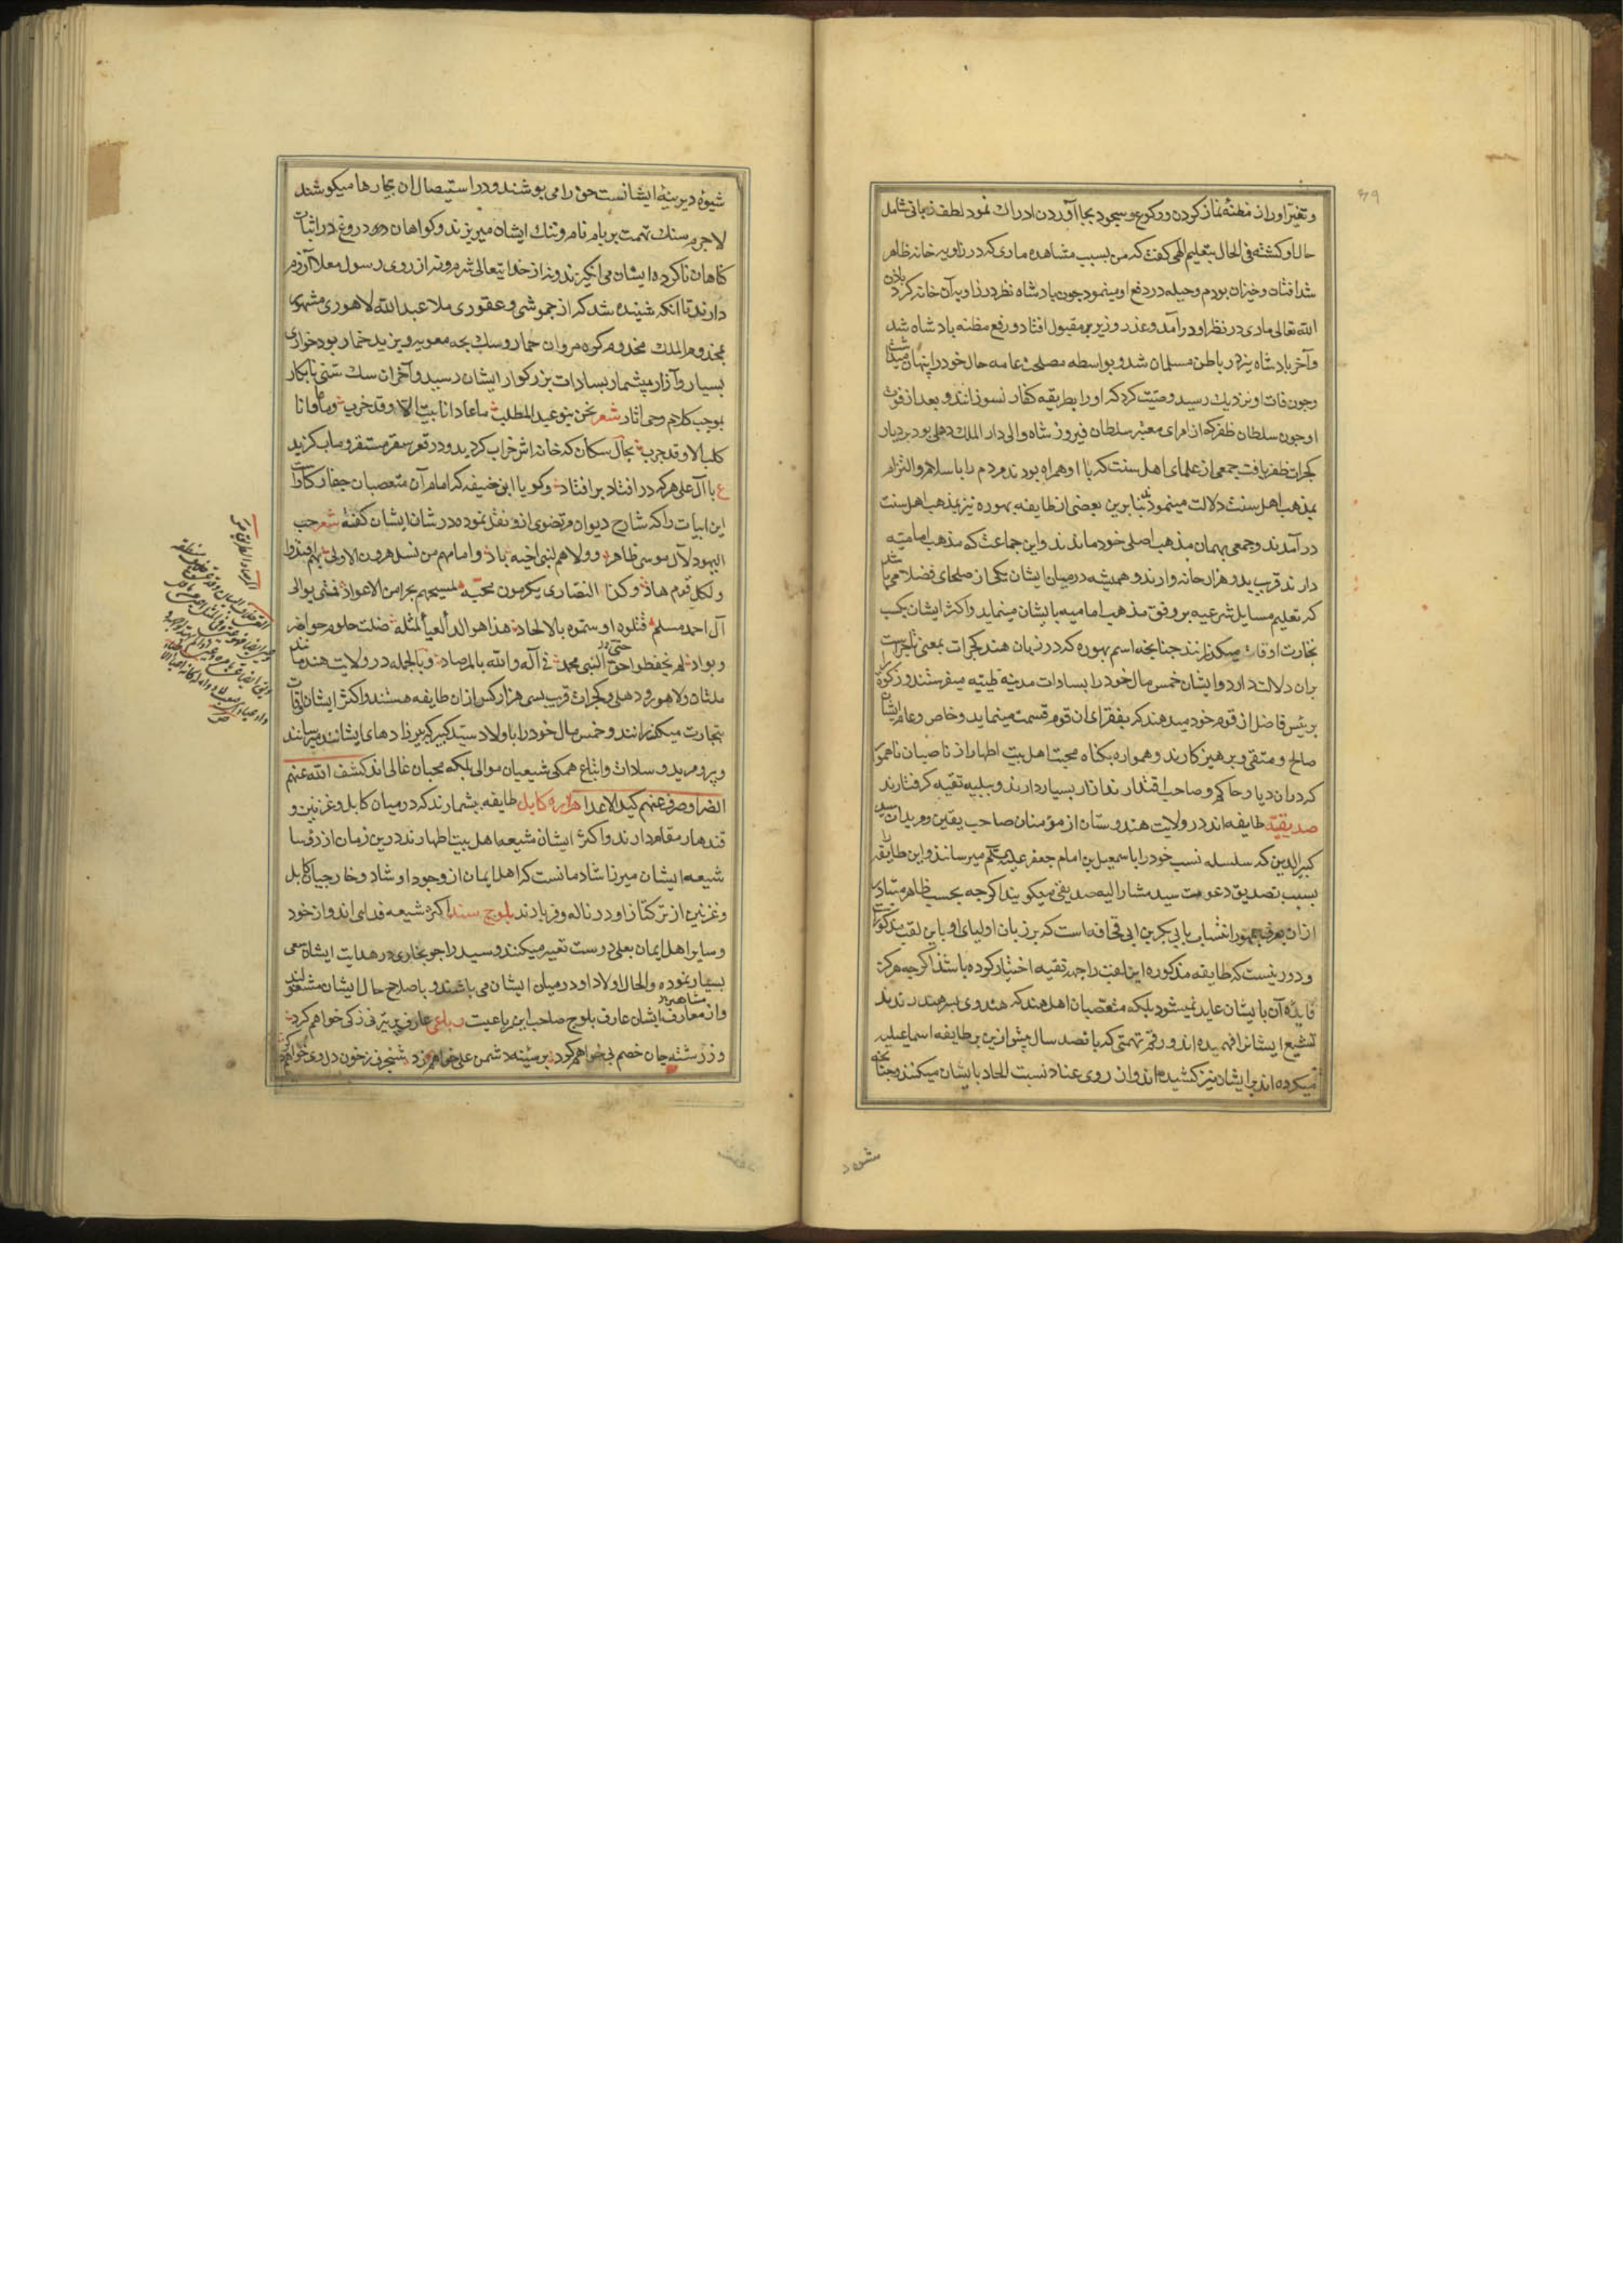 و تغیر او را از مظنه نماز کردن و رکوع و سجود بجا آوردن ادراک نمود لطف ربانی شامل
حال او کشته فی الحال بتعلیم الهی کفت که من بسبب مشاهده ماری که در زاویه خانه ظاهر
شد افتان و خیزان بودم و حیله در دفع او مینمود چون پادشاه نظر در زاویه آن خانه کرد باذن
الله تعالی ماری در نظر او درآمد و عذر وزیر مقبول افتاد و رفع مظنه پادشاه شد
و آخر پادشاه نیز در باطن مسلمان شد و بواسطه مصلحت عامه حال خود را پنهان میداشت
و چون وفات او نزدیک رسید وصیت کرد که او را بطریقه کفار نسوزانند و بعد از فوت
او چون سلطان ظفر که از امرای معتبر سلطان فیروز شاه والی دار الملک دهلی بود بر دیار
کجرات ظفر یافت جمعی از علمای اهل سنت که با او همراه بودند مردم را باسلام و التزام
بمذهب اهل سنت دلالت مینمودند بنابرین بعضی از طایفه بهوره نیز بمذهب اهل سنت
درآمدند و جمعی بهمان مذهب اصلی خود ماندند و این جماعت که مذهب امامیه
دارند قریب بدو هزار خانه وارند و همیشه در میان ایشان یکی از صلحای فضلا می باشد
که تعلیم مسایل شرعیه بر وفق مذهب امامیه بایشان مینماید و اکثر ایشان بکسب
تجارت اوقات میکذرانند چنانچه اسم بهوره که در زبان هند کجرات بمعنی تاجر است
بران دلالت دارد و ایشان خمس مال خود را بسادات مدینه طیبه میفرستند و زکوة را
برئیس فاضل از قوم خود میدهند که بفقرای ان قوم قسمت مینماید و خاص و عام ایشان
صالح و متقی و پرهیز کارند و همواره بکناه محبت اهل بیت اطهار از ناصبیان ناهموار
که دران دیار حاکم و صاحب اقتدارند ازار بسیار دارند و ببلیه تقیه کرفتارند
صدیقیه طایفه اند در ولایت هندوستان از مؤمنان صاحب یقین و مریدان سید
کبیر الدین که سلسله نسب خود را باسمعیل بن امام جعفر علیه السلم میرسانند و این طایفه را
بسبب تصدیق دعوت سید مشار الیه صدیقی میکویند اکرچه بحسب ظاهر متبادر
ازان بعرف جمهور انتساب بابی بکر بن ابی قحافه است که بر زبان اولیای او باین لقب مذکور است
و دور نیست که طایفه مذکوره این لقب را جهة تقیه اختیار کوده باشند اکرچه هرکز
فایده آن بایشان عاید نمیشود بلکه متعصبان اهل هند که هندوی
تشیع ایشانرا فهمیده اند و رقم تهمتی که پانصد سال پیش ازین بر طایفه اسماعیلیه
میکرده اند بر ایشان نیز کشیده اند و از روی عناد نسبت الحاد بایشان میکنند و چنانچه
شیوه دیرینه ایشانست حق را می پوشند و در استیصال ان بیچارها میکوشند
لاجرم سنک تهمت بر بام نام و ننک ایشان میریزند و کواهان دروغ در اثبات
کناهان ناکرده ایشان می انکیزند و نه از خدایتعالی شرم و نه از روی رسول معلا آزرم
دارند تا انکه شنیده شد که از و عقوری ملا عبد الله لاهوری مشهور
بمخدوم الملک مخدوم کوه مروان حمار و سک بچه معویه و یزید خمار بود خواری
بسیار و آزار بیشمار بسادات بزرکوار ایشان رسید و آخر ان سک سنی نابکار
بموجب کلام وحی اثار شعر نحن بنو عبد المطلب ما عادانا بیت الا و قد خرب و ما عاوانا
کلب الا و قد جرب بحال سکان که خانه اش خراب کردید و در قعر سقر مستقر و مآب کزید
ع با آل علی هرکه درافتاد برافتاد و کویا ابن حنیفه که امام آن متعصبان جفاکار
این ابیات را که شارح دیوان مرتضوی ازو نقل نموده در شان ایشان کفته شعر حب
الیهود لآل موسی ظاهر و ولاهم لبنی اخیه باد و امامهم من نسل هرون الاولی بهم اقتدوا
و لکل قوم هاد و کذا النصاری یکرمون محبة لمسیحهم بجرا من الاعواد فمتی یوالی
آل احمد مسلم قتلوه او سموه بالالحاد هذا هو الداء العیاء لمثله ضلت حلوم حواضر
و بواد لم یحفظوا حق النبی محمد فی آله و الله بالمرصاد و بالجمله در ولایت هند مانند
ملتان و لاهور و دهلی و کجرات قریب بسی هزار کس ازان طایفه هستند و اکثر ایشان اوقات
بتجارت میکذرانند و خمس مال خود را با ولاد سید کبیر که پیر زادهای ایشانند میرسانند
و پیر و مرید و سادات و اتباع همکی شیعیان موالی بلکه محبان غالی اند کشف الله عنهم
الضر و صرف عنهم کید الاعدا هزاره کابل طایفه بیشمارند که در میان کابل و غزنین و
قندهار مقام دارند و اکثر ایشان شیعه اهل بیت اطهارند درین زمان از رؤسا
شیعه ایشان میرزا شادمانست که اهل ایمان از وجود او شاد و خارجیان کابل
و غزنین از ترکتاز او در ناله و فریادند بلوچ سند اکثر شیعه فدایی اند و از خود
و سایر اهل ایمان بعلی دوست تعبیر میکنند و سید راجو بخاری در هدایت ایشان سعی
بسیار نموده و الحال اولاد او در میان ایشان می باشند و باصلاح حال ایشان مشغولند
و از مشاهیر معارف ایشان عارف بلوچ صاحب این رباعیست رباعی
و ز رشته جان خصم بر سینه دشمن علی خواهم زد شنجرف ز خون